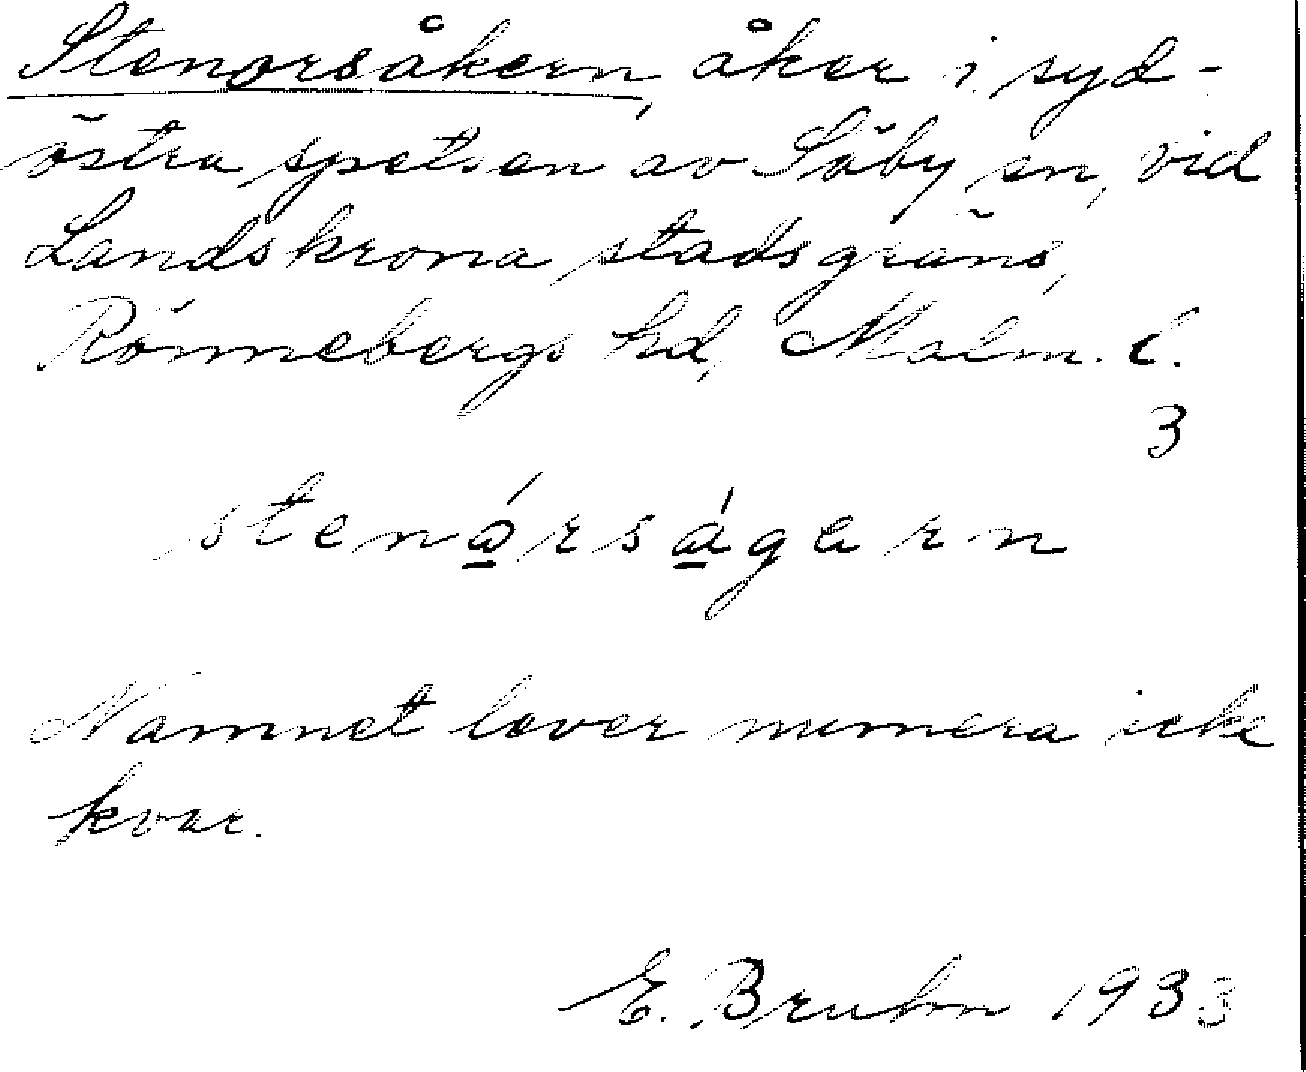 Stenorsåkern, åker i syd-
östra spetsen av Säby sn, vid
Landskrona stadsgräns,
Rönnebergs hd, Malm. l.
3
stenórságern
Namnet lever numera icke
kvar.
E. Bruhn 1933